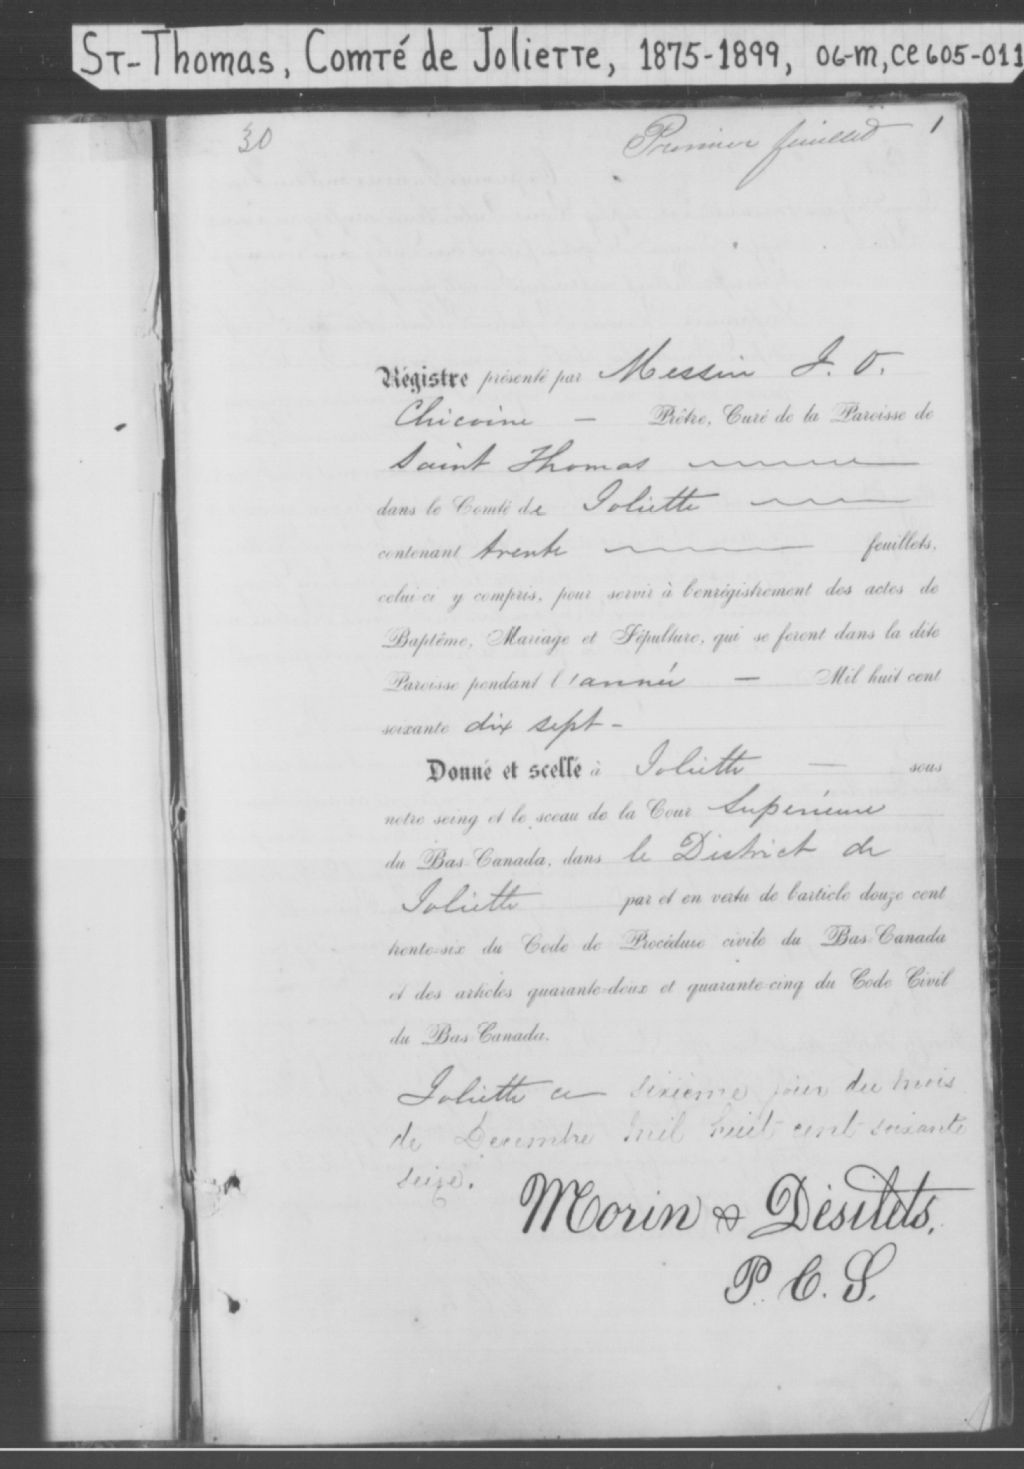 St-Thomas, Comté de Joliette, 1875-1899, 06-M, CE605-011
30
Premier feuillet 1
Régistre présenté par Messire J. O.
Chicoine — Prêtre, Curé de la Paroisse de
Saint Thomas
dans le Comté de Joliette
contenant trente feuillets,
celui-ci y compris, pour servir à l'enrégistrement des actes de
Baptême, Mariage et Sépulture, qui se feront dans la dite
Paroisse pendant l'année — Mil huit cent
soixante dix sept -
Donné et scellé à Joliette — sous
notre seing et le sceau de la Cour Supérieure
du Bas-Canada, dans le District de
Joliette par et en vertu de l'article douze cent
trente-six du Code de Procédure civile du Bas-Canada
et des articles quarante-deux et quarante-cinq du Code Civil
du Bas-Canada.
Joliette ce sixième jour du mois
de Decembre mil huit cent soixante
seize.
Morin & Désilets,
P. C. S.